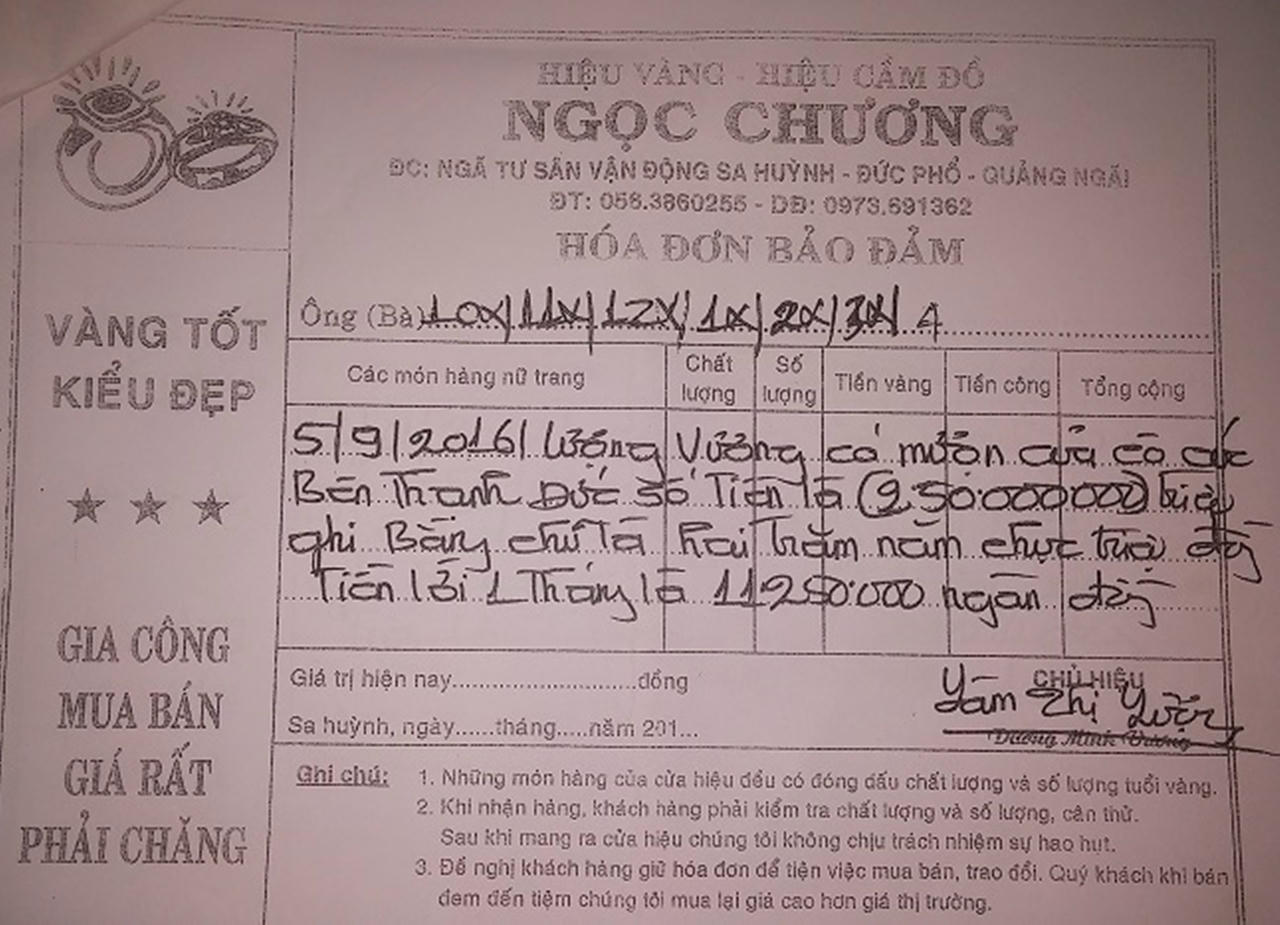 HIỆU VÀNG - HIỆU CẦM ĐỒ
NGỌC CHƯƠNG
ĐC: NGÃ TƯ SÂN VẬN ĐỘNG SA HUỲNH - ĐỨC PHỔ - QUẢNG NGÃI
ĐT: 056.3860255 - DĐ: 0973.691362
HÓA ĐƠN BẢO ĐẢM
VÀNG TỐT
KIỂU ĐẸP
GIA CÔNG
MUA BÁN
GIÁ RẤT
PHẢI CHĂNG
Ông (Bà) 10X/11X/12X/1X/2X/3X/ 4
Các món hàng nữ trang Chất lượng Số lượng Tiền vàng Tiền công Tổng cộng
5/9/2016/ Lương Vương có mượn của cô
Bên Thanh Đức số Tiền là (250.000000) triệu
ghi Bằng chữ là hai trăm năm chục triệu đồng
Tiền lời 1 Tháng là 11250.000 ngàn đồng
Giá trị hiện nay..............................đồng
CHỦ HIỆU
Sa huỳnh, ngày......tháng.....năm 201...
Thị
Dương Minh Vương
Ghi chú: 1. Những món hàng của cửa hiệu đều có đóng dấu chất lượng và số lượng tuổi vàng.
2. Khi nhận hàng, khách hàng phải kiểm tra chất lượng và số lượng, cân thử.
Sau khi mang ra cửa hiệu chúng tôi không chịu trách nhiệm sự hao hụt.
3. Đề nghị khách hàng giữ hóa đơn để tiện việc mua bán, trao đổi. Quý khách khi bán
đem đến tiệm chúng tôi mua lại giá cao hơn giá thị trường.